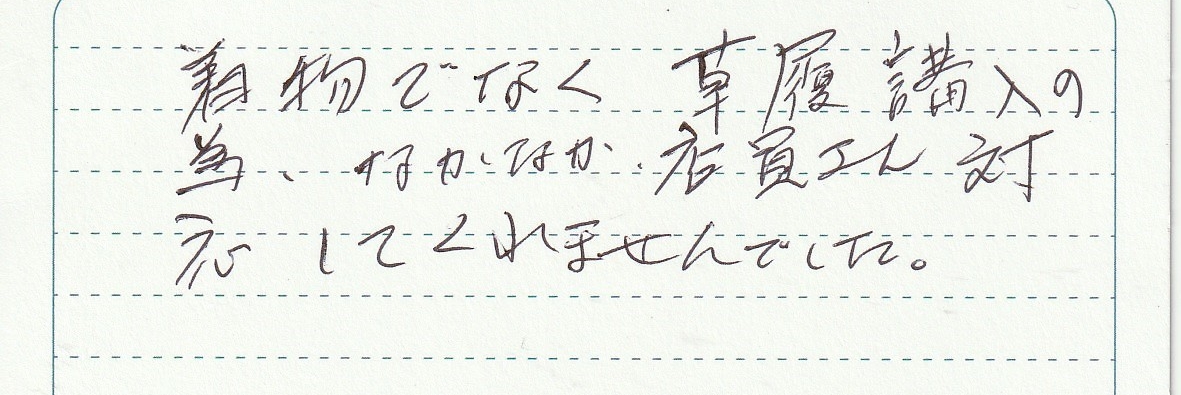 着物でなく 草履 講入の
為、なかなか、店員さん 対
応 してくれませんでした。